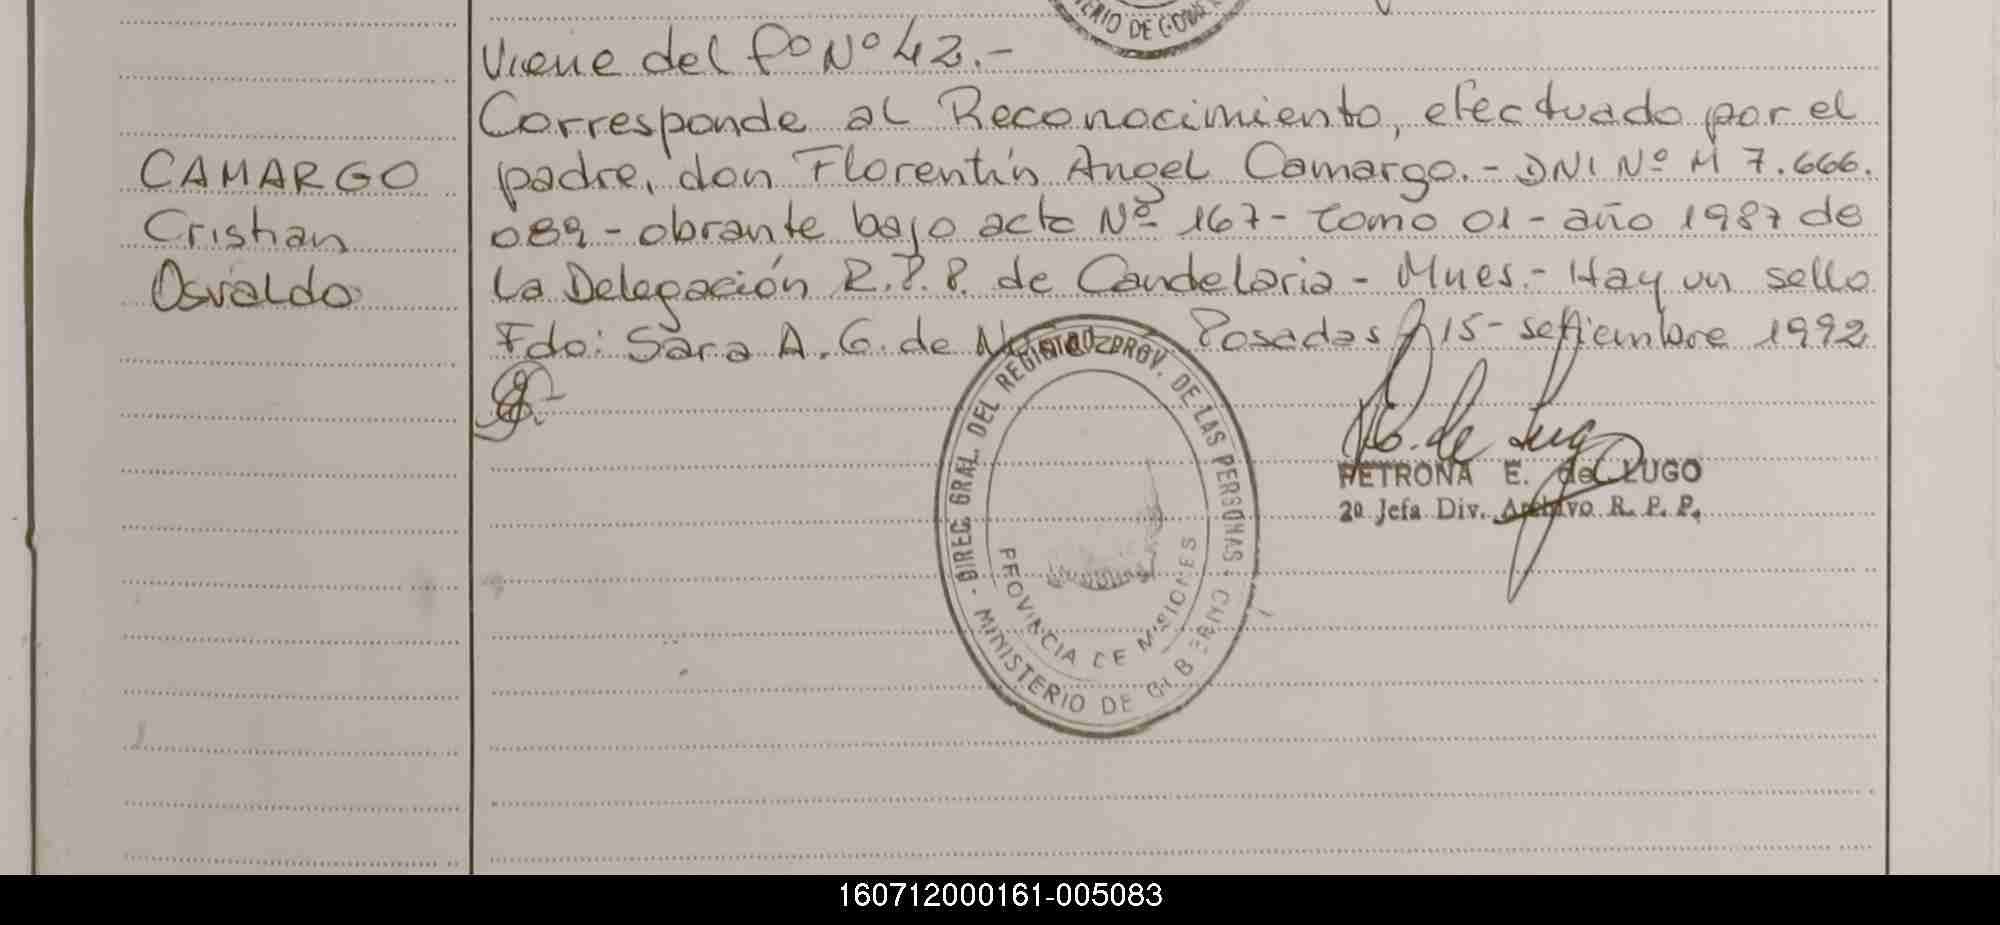 Viene del fº Nº 42.-
Corresponde al Reconocimiento, efectuado por el
CAMARGO
padre, don Florentín Angel Camargo.- DNI Nº M 7.666.
Cristian
089 - obrante bajo acta Nº 167 - Tomo 01 - año 1987 de
Osvaldo
La Delegación R.P.P. de Candelaria - Mnes.- Hay un sello
Fdo: Sara A. G. de Posadas 15 - septiembre 1992
DIREC. GRAL. DEL REGISTRO PROV. DE LAS PERSONAS
MINISTERIO DE GOBIERNO
PROVINCIA DE MISIONES
MINISTERIO DE GOBIERNO
de Lugo
PETRONA E. de LUGO
2º Jefa Div. Archivo R. P. P.
160712000161-005083